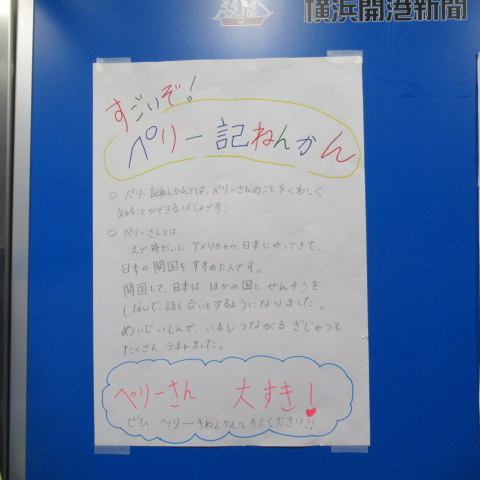 横浜開港新聞
すごいぞ!
ペリー記ねんかん
○ ペリー記ねんかんとは、ペリーさんのことをくわしく
知ることができるばしょです!
○ ペリーさんとは…
えど時だいに アメリカから 日本にやってきて、
日本の開国をすすめた人です。
開国して、日本は、ほかの国と、せんそうを
しないで、話し合いをするようになりました。
めいじいしんで、いまにつながる ぎじゅつも
たくさん うまれました。
ペリーさん 大すき!
ぜひ ペリーきねんかんへ きてください!!